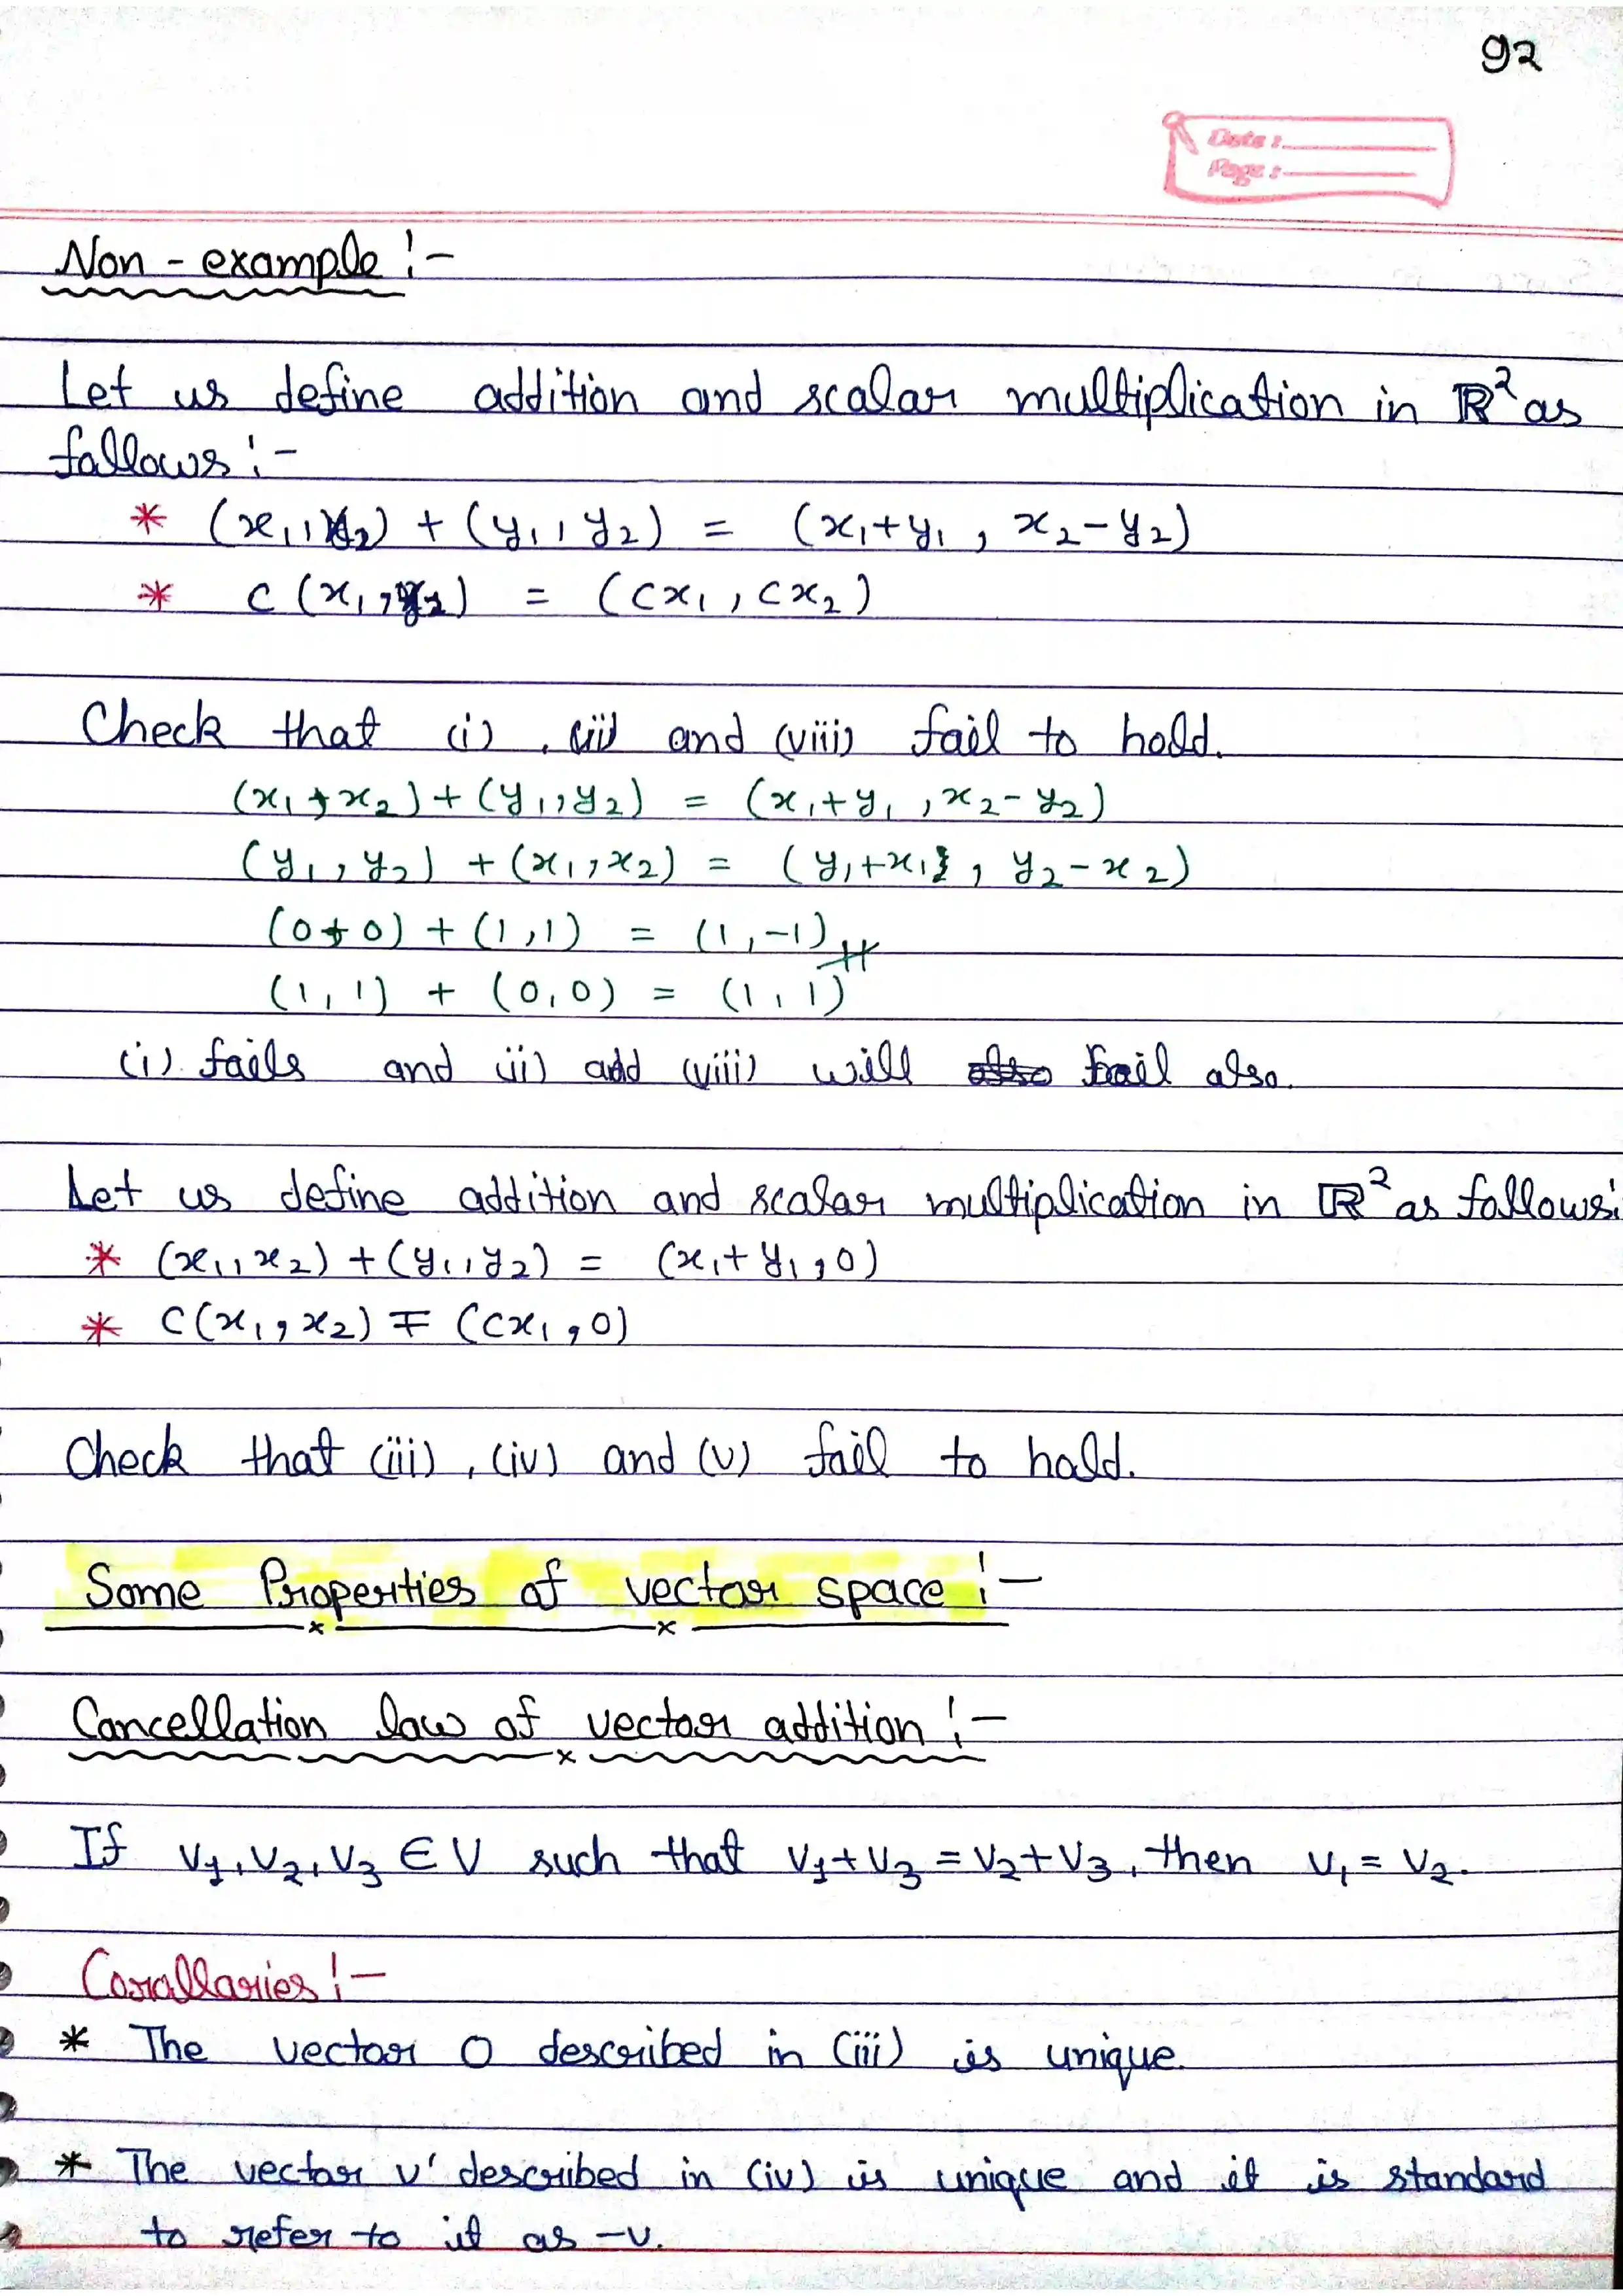 92
Date :
Page :
Non-example :-
Let us define addition and scalar multiplication in ℝ² as
follows :-
* (x₁, x₂) + (y₁, y₂) = (x₁+y₁, x₂-y₂)
* c(x₁, x₂) = (cx₁, cx₂)
Check that (i), (ii) and (viii) fail to hold.
(x₁, x₂) + (y₁, y₂) = (x₁+y₁, x₂-y₂)
(y₁, y₂) + (x₁, x₂) = (y₁+x₁, y₂-x₂)
(0, 0) + (1, 1) = (1, -1)
(1, 1) + (0, 0) = (1, 1)
(i) fails and (ii) add (viii) will fail also.
Let us define addition and scalar multiplication in ℝ² as follows:
* (x₁, x₂) + (y₁, y₂) = (x₁+y₁, 0)
* c(x₁, x₂) = (cx₁, 0)
Check that (iii), (iv) and (v) fail to hold.
Some Properties of vector space :-
Cancellation law of vector addition :-
If v₁, v₂, v₃ ∈ V such that v₁+v₃ = v₂+v₃, then v₁ = v₂.
Corollaries :-
* The vector 0 described in (iii) is unique.
* The vector v' described in (iv) is unique and it is standard
to refer to it as -v.